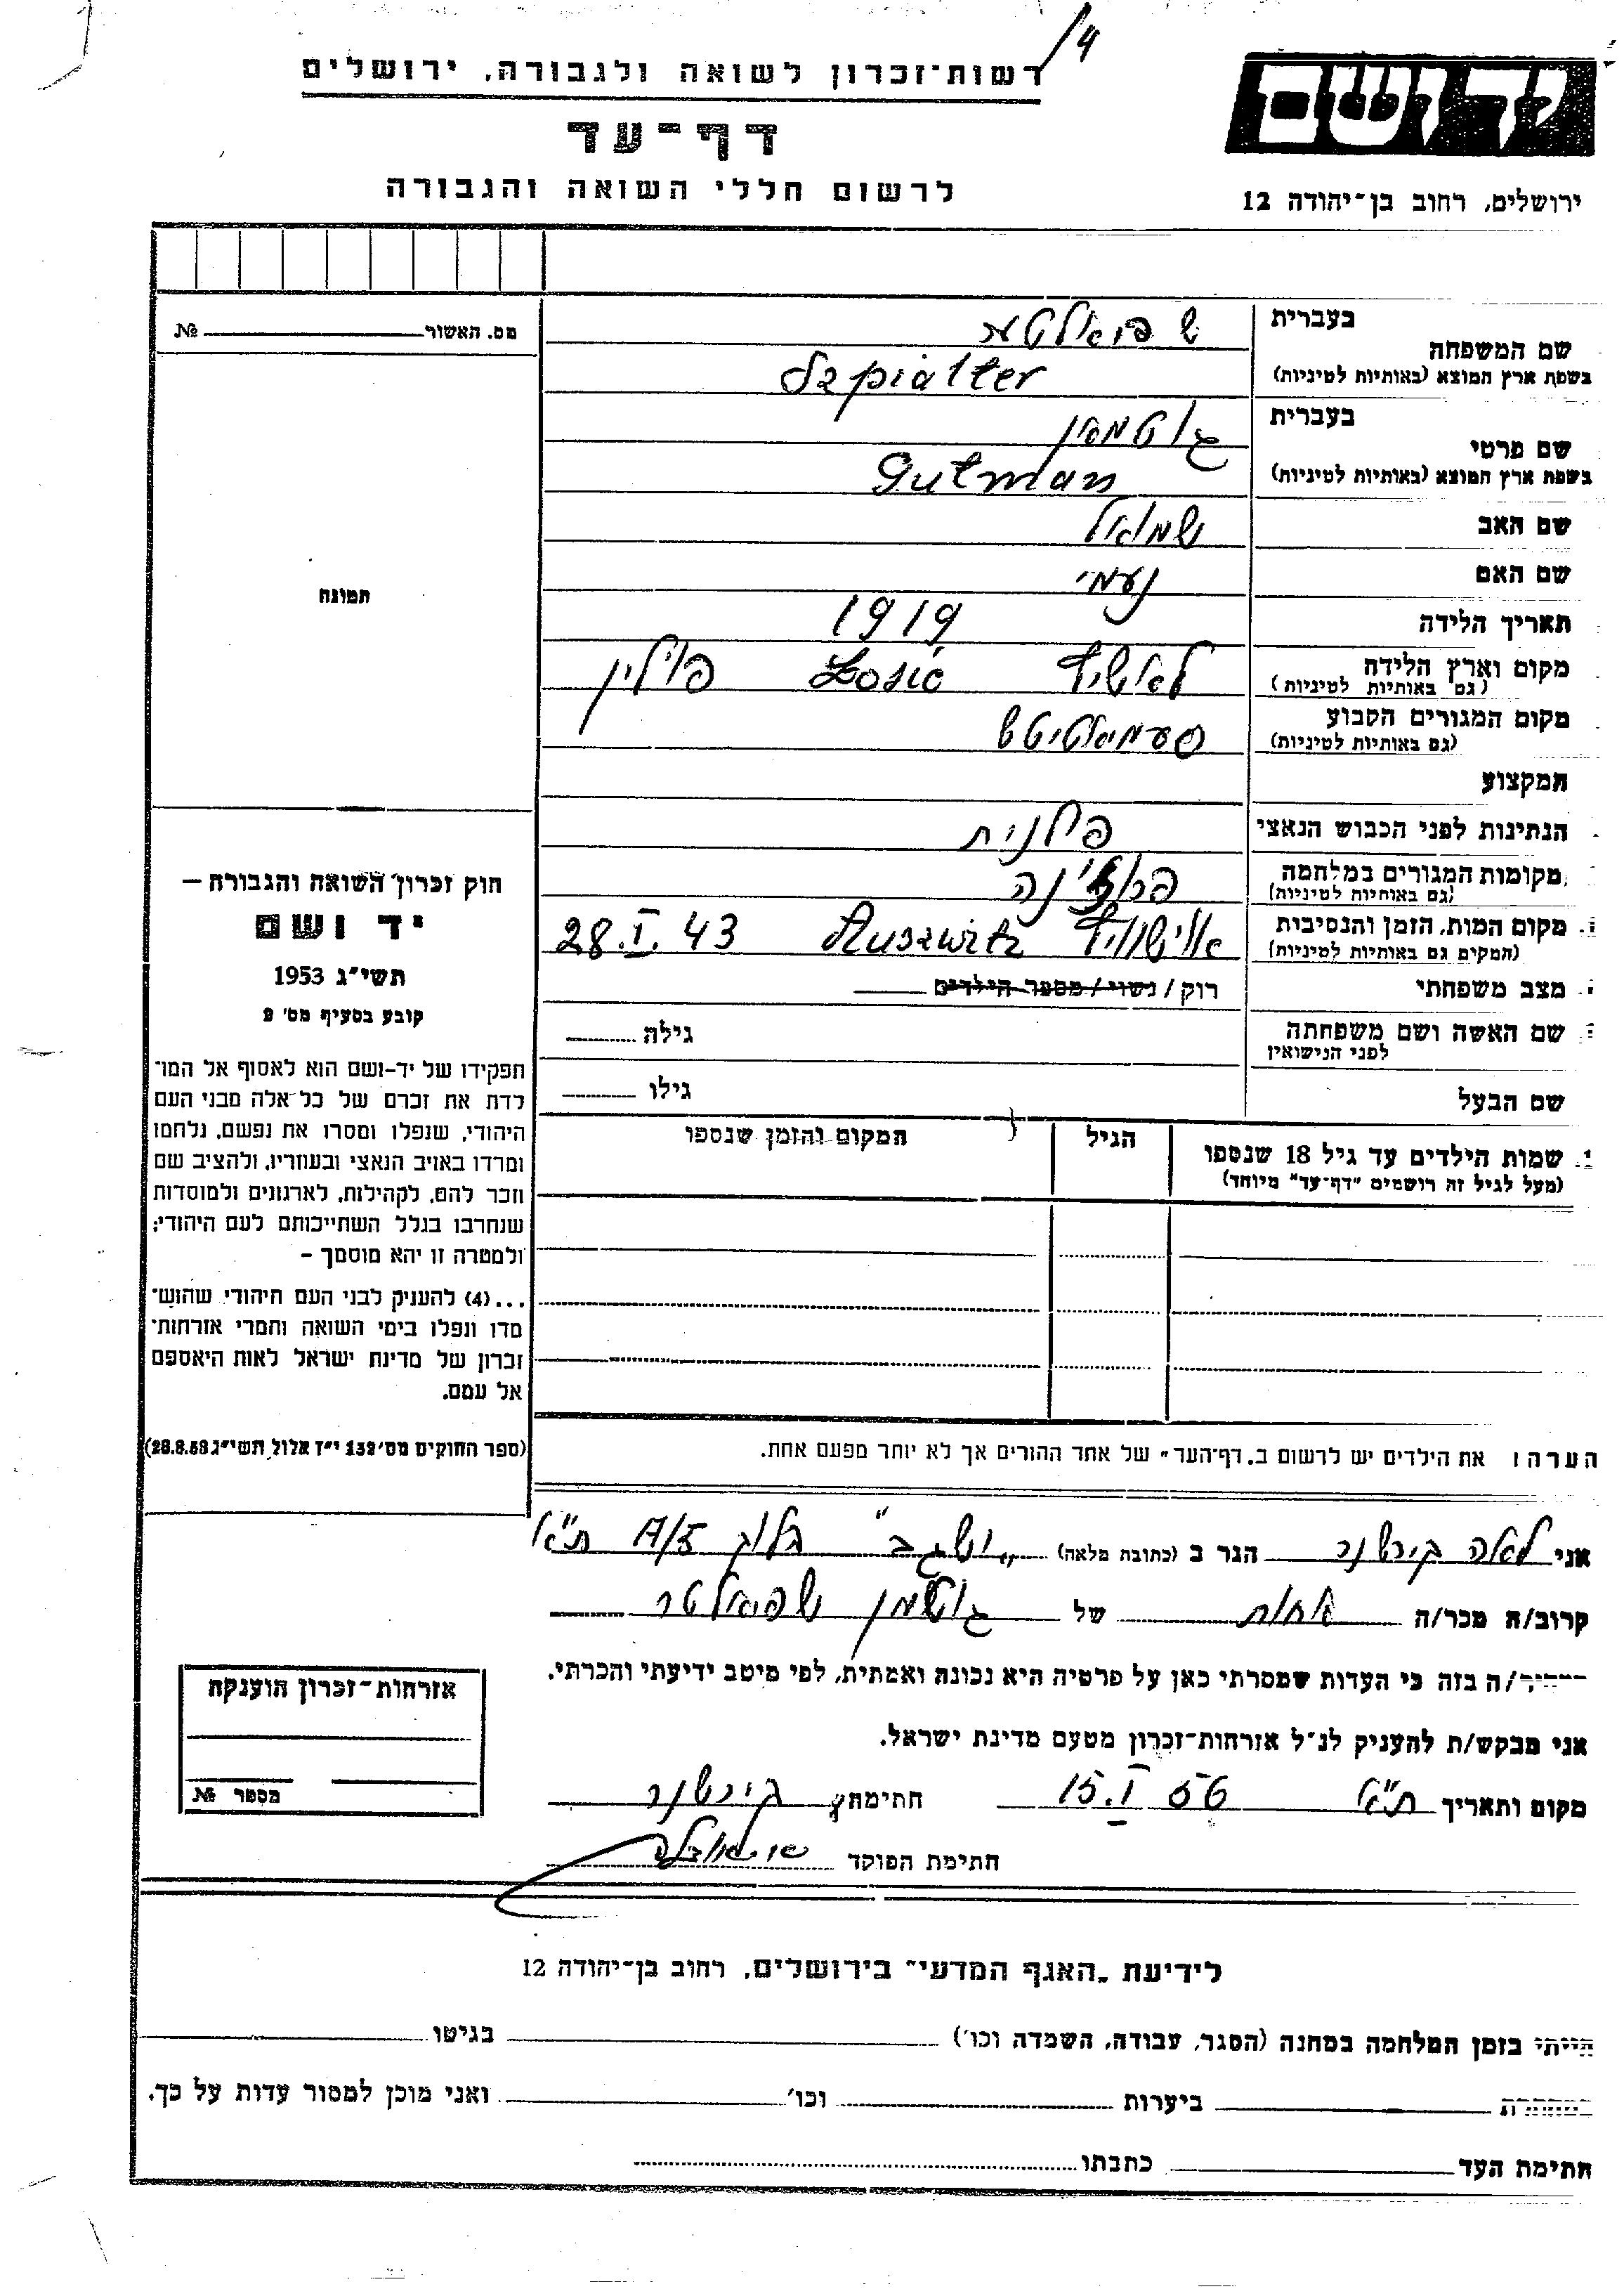 4/
רשות־זכרון לשואה ולגבורה, ירושלים
ד ף - ע ד
לרשום חללי השואה והגבורה
יד ושם
ירושלים, רחוב בן־יהודה 12
בעברית
שם המשפחה שפיאלטר
בשפת ארץ המוצא (באותיות לטיניות) Szpialter
בעברית
שם פרטי גוטמאן
בשפת ארץ המוצא (באותיות לטיניות) Gutman
שם האב שמואל
שם האם נעמי
תאריך הלידה 1919
מקום וארץ הלידה לאשיץ Łosić פולין
(גם באותיות לטיניות)
מקום המגורים הקבוע סעמיאטיטש
(גם באותיות לטיניות)
המקצוע
הנתינות לפני הכבוש הנאצי פולנית
מקומות המגורים במלחמה
(גם באותיות לטיניות)
מקום המות, הזמן והנסיבות אוישוויץ Auszwitz 28.I.43
(המקום גם באותיות לטיניות)
מצב משפחתי רוק / נשוי / מספר הילדים
שם האשה ושם משפחתה גילה
לפני הנישואין
שם הבעל גילו
שמות הילדים עד גיל 18 שנספו הגיל המקום והזמן שנספו
(מעל לגיל זה רושמים "דף־עד" מיוחד)
מס. האשור №
תמונה
חוק זכרון השואה והגבורה —
יד ושם
תשי"ג 1953
קובע בסעיף מס' 2
תפקידו של יד-ושם הוא לאסוף אל המו־
לדת את זכרם של כל אלה מבני העם
היהודי, שנפלו ומסרו את נפשם, נלחמו
ומרדו באויב הנאצי ובעוזריו, ולהציב שם
וזכר להם, לקהילות, לארגונים ולמוסדות
שנחרבו בגלל השתייכותם לעם היהודי;
ולמטרה זו יהא מוסמך –
...(4) להעניק לבני העם היהודי שהוש־
מדו ונפלו בימי השואה והמרי אזרחות־
זכרון של מדינת ישראל לאות היאספם
אל עמם.
(ספר החוקים מס' 132 י"ז אלול תשי"ג 28.8.53)
הערה: את הילדים יש לרשום ב„דף־העד" של אחד ההורים אך לא יותר מפעם אחת.
אני לאה בירשנר הגר ב (כתובת מלאה) „ושגב" בלוק 17/5 ת"א
קרוב/ה מכר/ה אחות של גוטמן שפיאלטר
/ה בזה כי העדות שמסרתי כאן על פרטיה היא נכונה ואמתית, לפי מיטב ידיעתי והכרתי.
אני מבקש/ת להעניק לנ"ל אזרחות־זכרון מטעם מדינת ישראל.
מקום ותאריך ת"א 15.I 56 חתימת בירשנר
חתימת הפוקד
אזרחות־זכרון הוענקה
מספר №
לידיעת „האגף המדעי" בירושלים, רחוב בן־יהודה 12
הייתי בזמן המלחמה במחנה (הסגר, עבודה, השמדה וכו') בגיטו
ביערות וכו' ואני מוכן למסור עדות על כך.
חתימת העד כתבתו